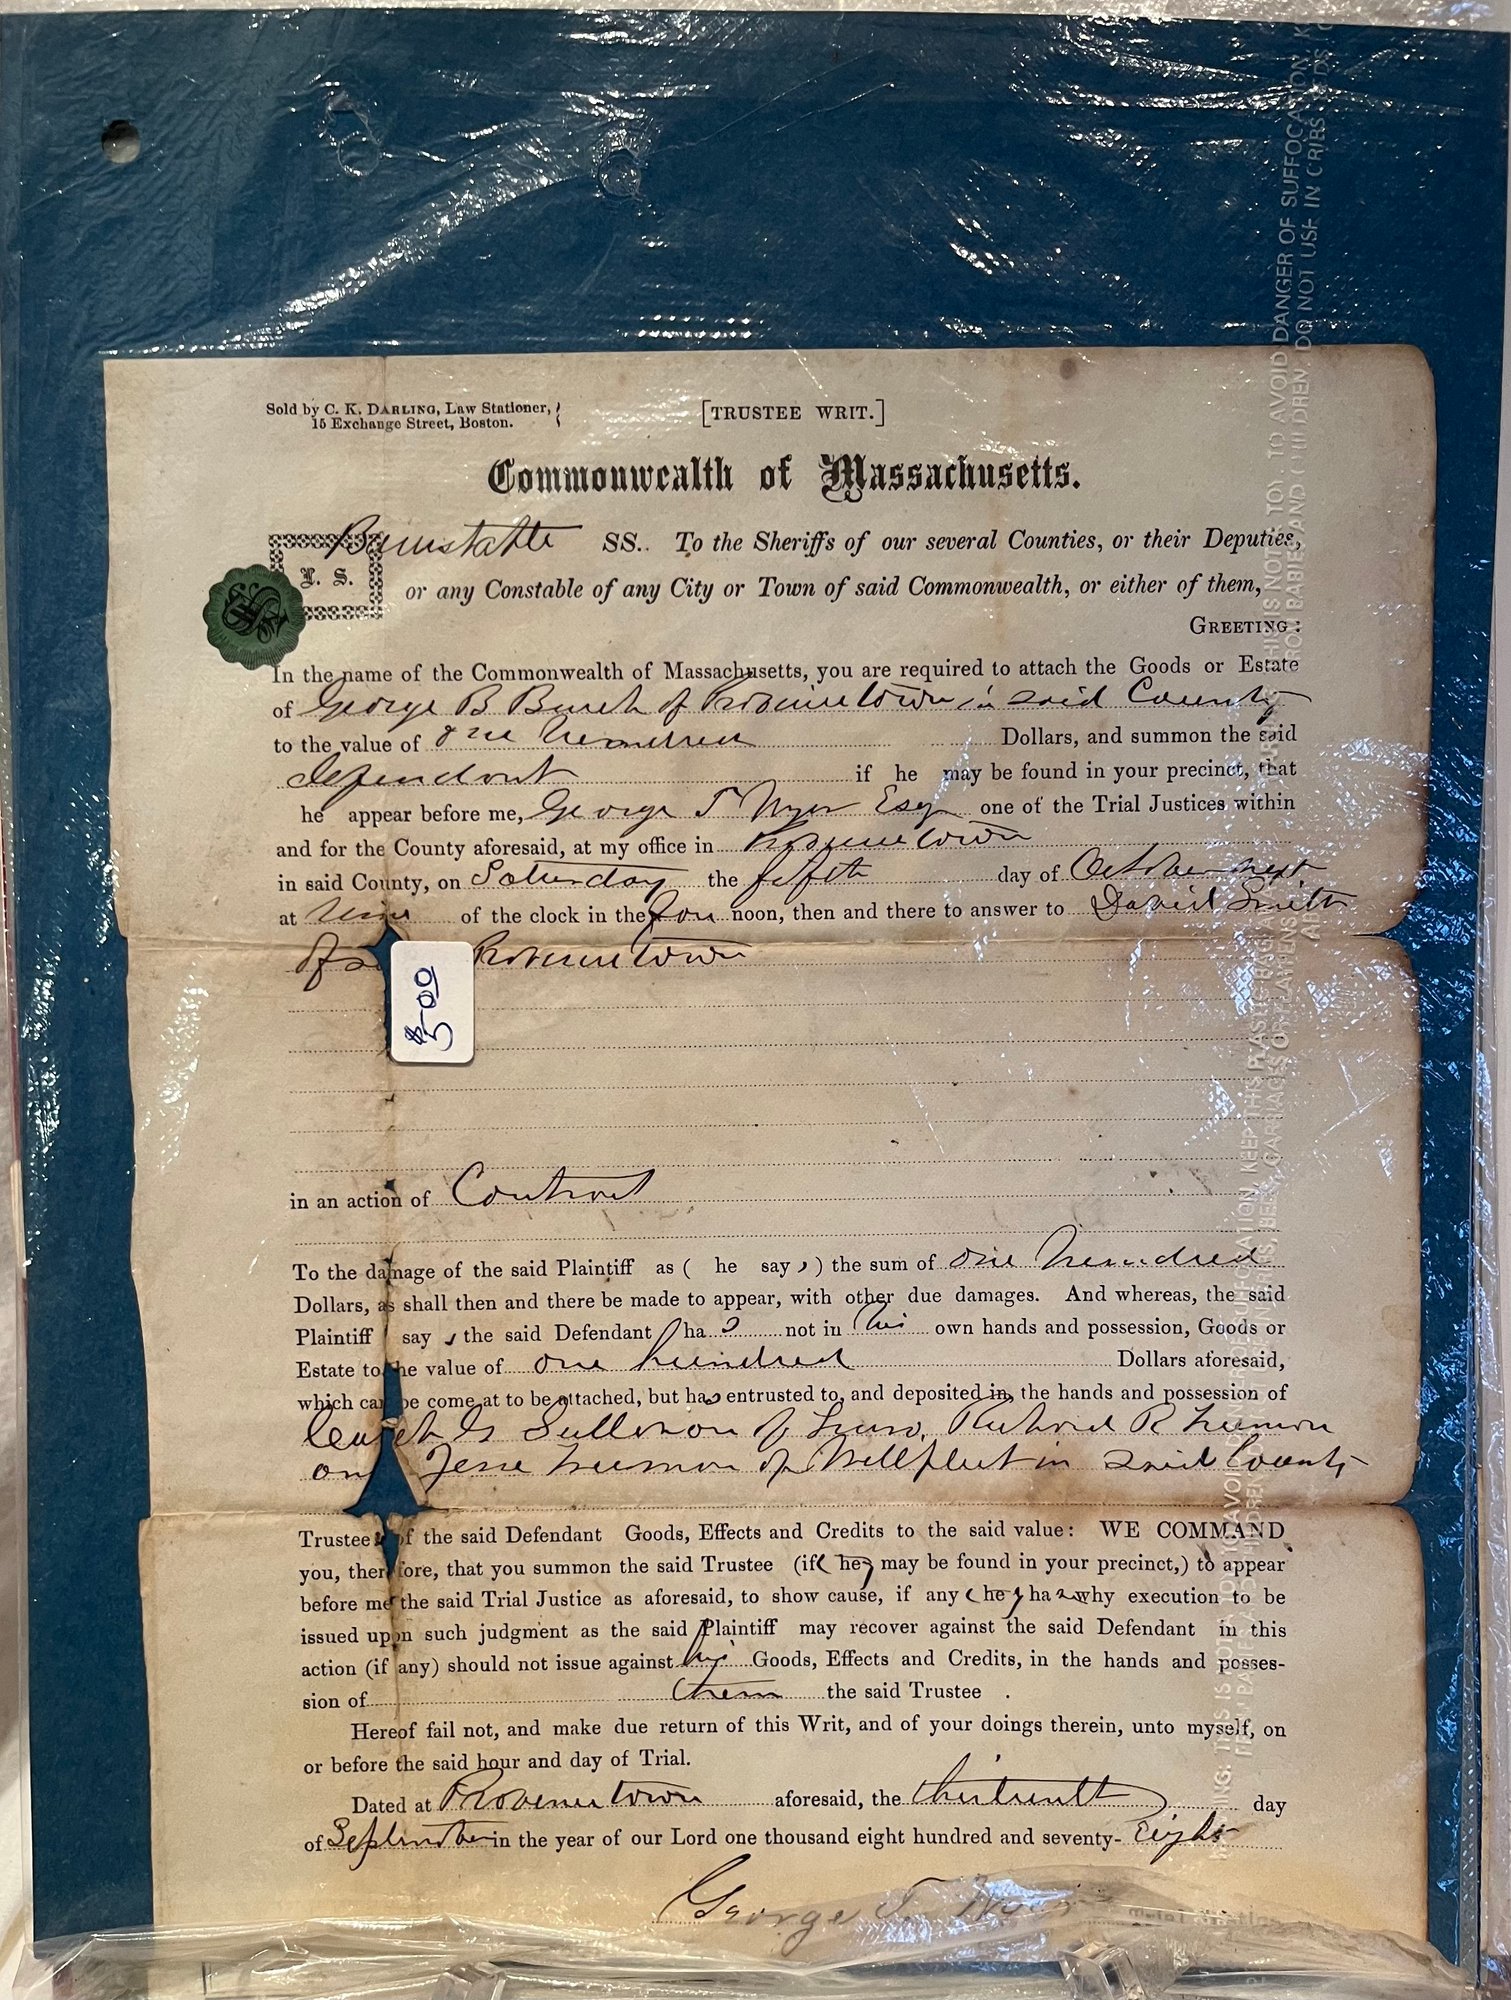 Sold by C. K. DARLING, Law Stationer,
15 Exchange Street, Boston.
[TRUSTEE WRIT.]
Commonwealth of Massachusetts.
Barnstable SS. To the Sheriffs of our several Counties, or their Deputies,
L. S.
or any Constable of any City or Town of said Commonwealth, or either of them,
GREETING:
In the name of the Commonwealth of Massachusetts, you are required to attach the Goods or Estate
of George B Burch of Provincetown in said County
to the value of one hundred Dollars, and summon the said
defendant if he may be found in your precinct, that
he appear before me, George T Esq one of the Trial Justices within
and for the County aforesaid, at my office in Provincetown
in said County, on Saturday the fifth day of October next
at nine of the clock in the fore noon, then and there to answer to David Smith
of Provincetown
$5.00
in an action of Contract
To the damage of the said Plaintiff as ( he say s ) the sum of one hundred
Dollars, as shall then and there be made to appear, with other due damages. And whereas, the said
Plaintiff say s the said Defendant ha s not in his own hands and possession, Goods or
Estate to the value of one hundred Dollars aforesaid,
which can be come at to be attached, but has entrusted to, and deposited in, the hands and possession of
of Truro, Richard R Freeman
and Jesse Freeman of Wellfleet in said County
Trustees of the said Defendant Goods, Effects and Credits to the said value: WE COMMAND
you, therefore, that you summon the said Trustee (if they may be found in your precinct,) to appear
before me the said Trial Justice as aforesaid, to show cause, if any they have why execution to be
issued upon such judgment as the said Plaintiff may recover against the said Defendant in this
action (if any) should not issue against his Goods, Effects and Credits, in the hands and posses-
sion of them the said Trustee .
Hereof fail not, and make due return of this Writ, and of your doings therein, unto myself, on
or before the said hour and day of Trial.
Dated at Provincetown aforesaid, the thirteenth day
of September in the year of our Lord one thousand eight hundred and seventy- Eight
George T.
TO AVOID DANGER OF SUFFOCATION, K
DO NOT USE IN CRIBS